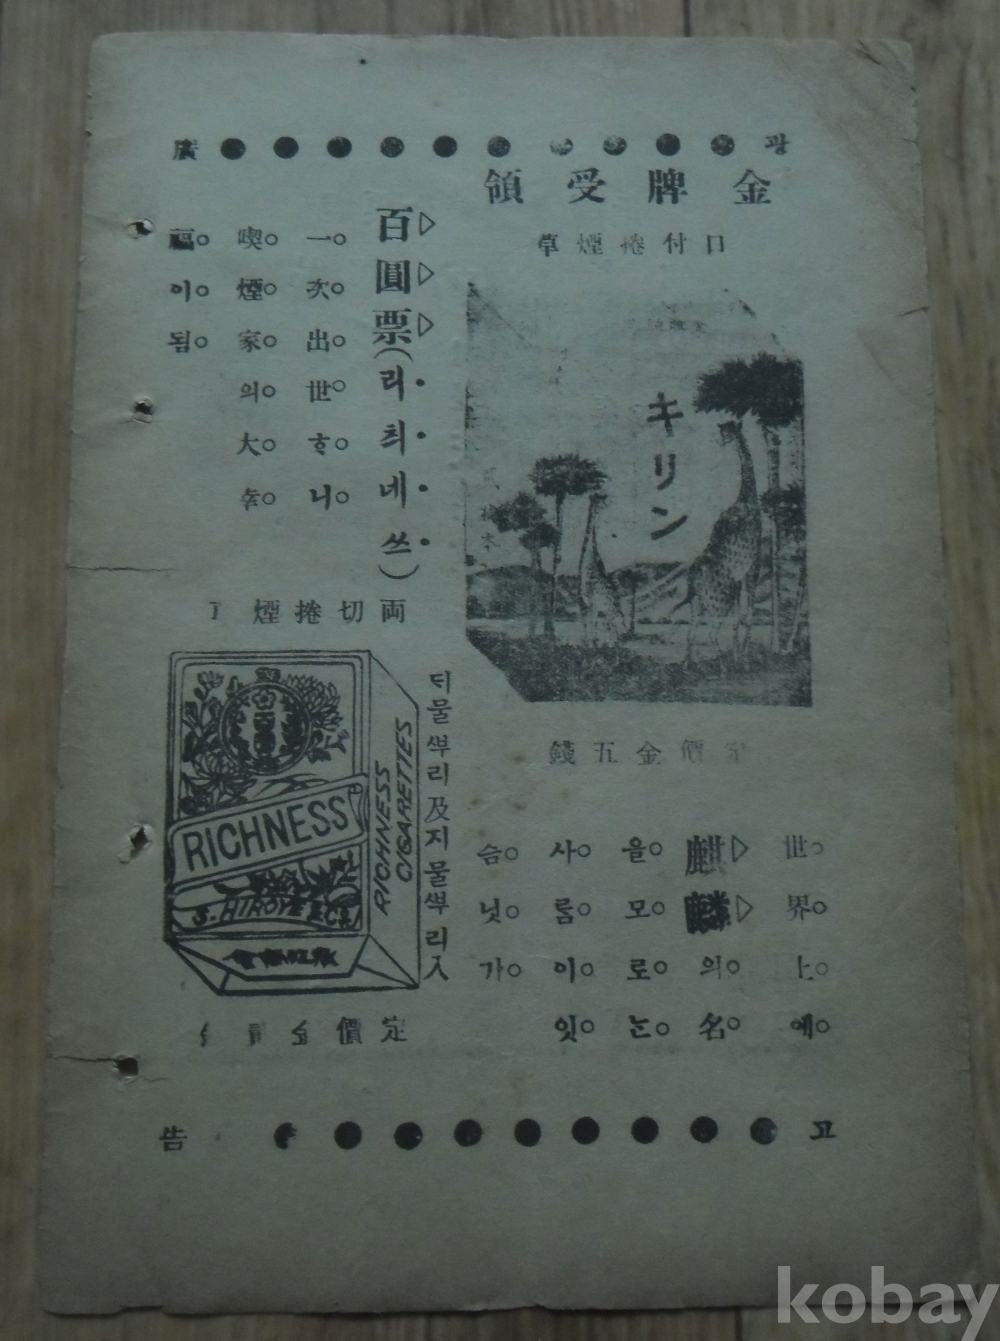 광
廣
金牌受領
口付捲煙草
キリン
定價金五錢
世界上에
麒麟의名
을모로ᄂᆞᆫ
사ᄅᆞᆷ이잇
슴닛가
百圓票(리최네쓰)
一次出世ᄒᆞ니
喫煙家의大幸
福이됨
両切捲煙
RICHNESS
RICHNESS
CIGARETTES
S. HIROYE & Co
뎌물ᄲᅮ리及지물ᄲᅮ리入
定價金
고
告
kobay